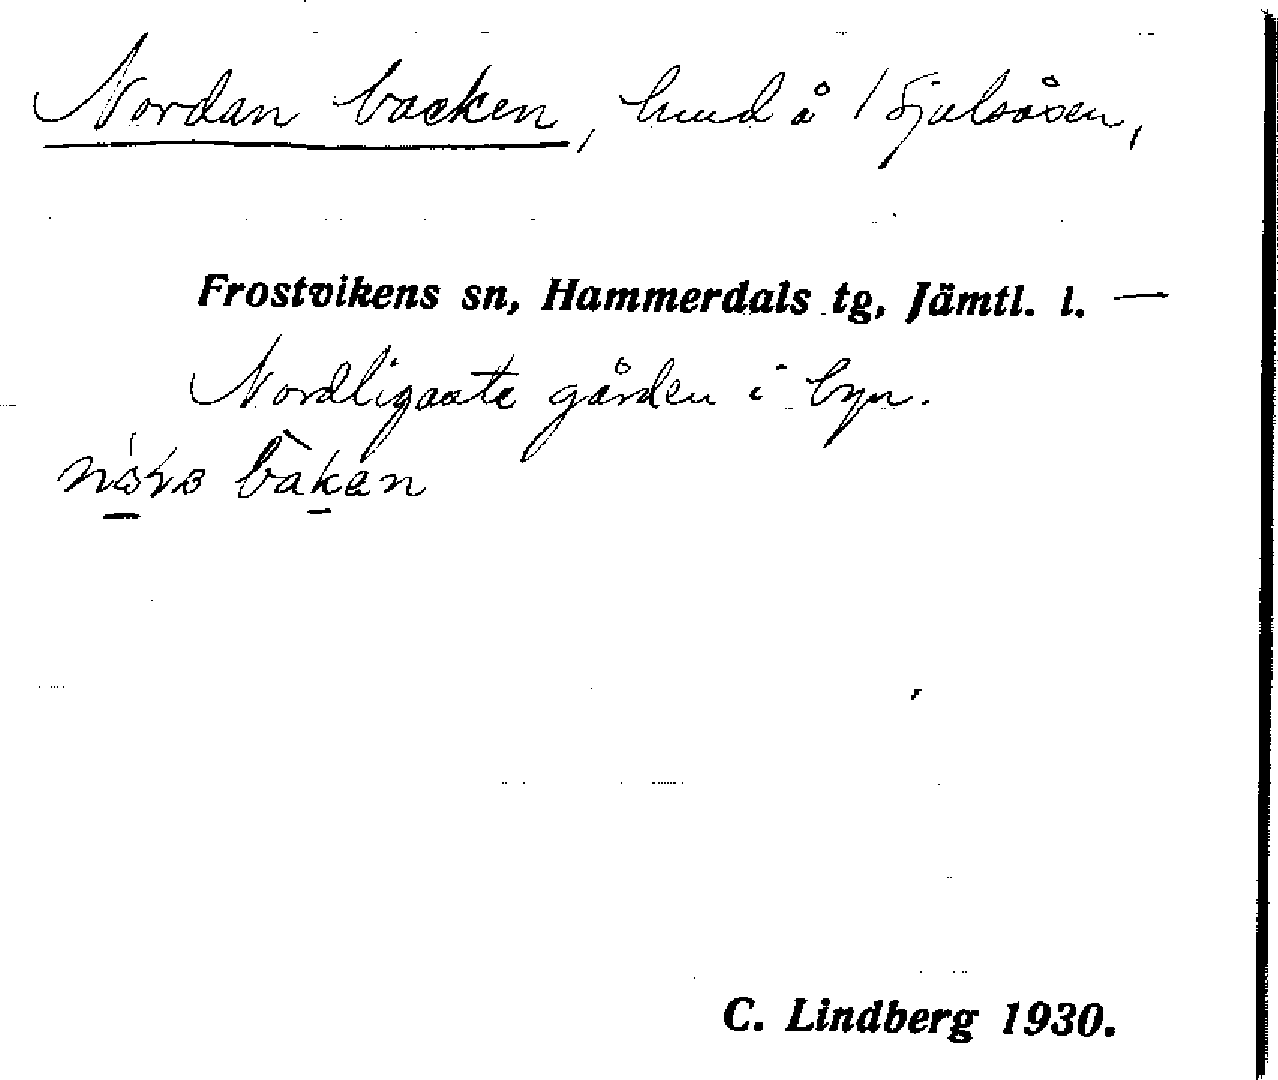 Nordan backen, hmd å 1 Sjulsåsen,
Frostvikens sn, Hammerdals tg, Jämtl. l. —
Nordligaste gården i byn.
bakan
C. Lindberg 1930.